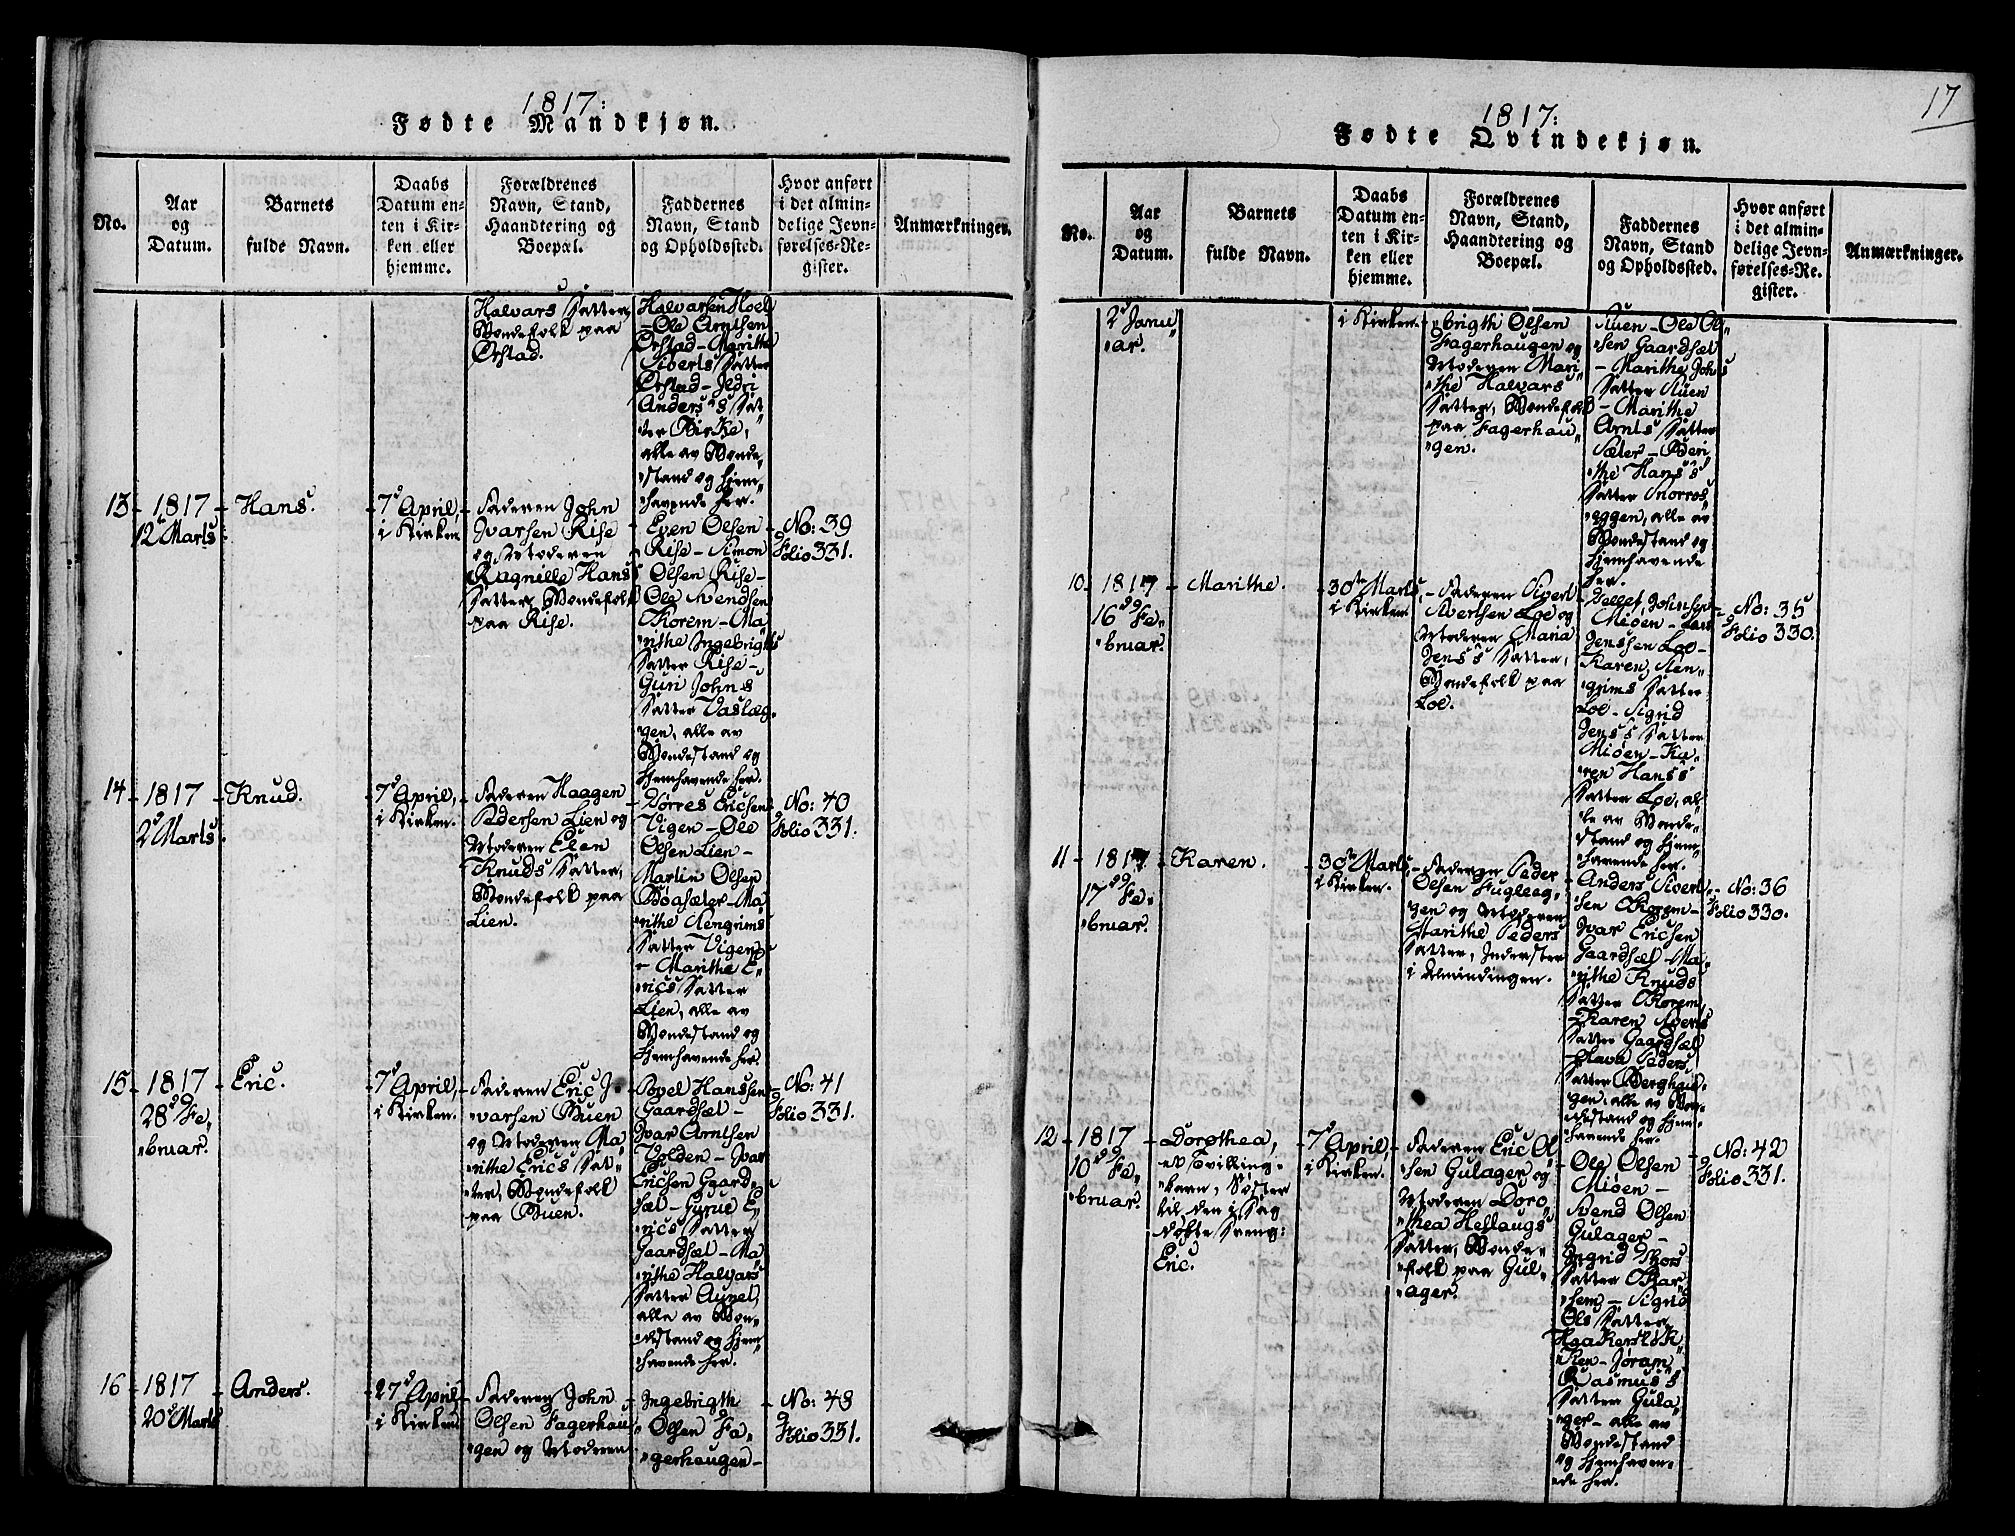 1817:
Fødte Mandkjøn.
No.
Aar
og
Datum.
Barnets
fulde Navn.
Daabs
Datum en-
ten i Kir-
ken eller
hjemme.
Forældrenes
Navn, Stand,
Haandtering og
Boepæl.
Faddernes
Navn, Stand
og Opholdssted.
Hvor anført
i det almin-
delige Jevn-
førelses-Re-
gister.
Anmærkninger.
Halvars Datter,
Bondefolk paa
Ørstad.
Halvarsen Hoel
– Ole Arntsen
Ørstad – Marithe
Siverts Datter
Ørstad – Jedri
Anders's Dat„
„ter Birke,
alle av Bonde„
„stand og hjem„
„havende her.
13 –
1817 –
12 Marts
Hans.
7d April,
i Kirken
– Faderen John
Ivarsen Rise
og Moderen
Ragnille Hans's
Datter, Bondefolk
paa Rise.
– Even Olsen
Rise – Simon
Olsen Rise –
Ole Svendsen
Korem – Ma„
„rithe Ingebrigts
Datter Rise –
Guri Johns
Datter Vaslæg„
„gen, alle av
Bondestand og
hjemhavende her.
– No: 39
Folio 331.
14 –
1817 –
2d Marts
Knud.
7d April,
i Kirken.
– Faderen Haagen
Pedersen Lien og
Moderen Elen
Knuds Datter,
Bondefolk paa
Lien.
– Tørres Ericsen
Vigen – Ole
Olsen Lien –
Martin Olsen
Bøasæter – Ma„
„rithe Stengrims
Datter Vigen
– Marithe E„
„rics Datter
Lien, alle av
Bondestand og
hjemhavende her.
– No: 40
Folio 331.
15 –
1817 –
28de Fe„
„bruar.
Eric.
7d April,
i Kirken.
– Faderen Eric I„
„varsen Buen
og Moderen Ma„
„rithe Erics Dat„
„ter, Bondefolk
paa Buen.
– Povel Hanssen
Gaardsæt –
Ivar Arntsen
Holden – Ivar
Ericsen Gaard„
„sæt – Gurue E„
„rics Datter
Gaardsæt – Ma„
„rithe Halvars
Datter Aunet,
alle av Bon„
„destand og hjem„
„havende her.
– No: 41
Folio 331.
16 –
1817 –
20d Marts
Anders.
27d April
i Kirken
– Faderen John
Olsen Fagerhau„
„gen og Moderen
– Ingebrigth
Olsen Fa„
„gerhaugen –
– No: 43
Folio 331.
17
1817:
Fødte Qvindekjøn.
No.
Aar
og
Datum.
Barnets
fulde Navn.
Daabs
Datum en-
ten i Kir-
ken eller
hjemme.
Forældrenes
Navn, Stand,
Haandtering og
Boepæl.
Faddernes
Navn, Stand
og Opholdssted.
Hvor anført
i det almin-
delige Jevn-
førelses-Re-
gister.
Anmærkninger.
2d Janu„
„ar.
i Kirken.
„brigth Olsen
Fagerhaugen og
Moderen Mari„
„the Halvars
Datter, Bondefolk
paa Fagerhau„
„gen.
Stuen – Ole Ol„
„sen Gaardsæt
– Marithe Johns
Datter Stuen
– Marithe
Arnts Datter
Sæter – Beri„
„the Hans's
Datter Snorros„
„eggen, alle av
Bondestand og
hjemhavende
her.
10 –
1817 –
16de Fe„
„bruar.
Marithe.
– 30te Marts,
i Kirken
– Faderen Sivert
Sivertsen Loe og
Moderen Maria
Jens's Datter,
Bondefolk paa
Loe.
– Dellef Johnsen
Mioen – Lars
Jenssen Loe –
Karen Sten„
„grims Datter
Loe – Sigrid
Jens's Datter
Mioen – Ka„
„ren Hans's
Datter Loe, al„
„le av Bonde„
„stand og hjem„
„havende her.
– No: 35
Folio 330.
11 –
1817 –
17de Fe„
„bruar.
Karen.
– 30te Marts,
i Kirken.
– Faderen Peder
Olsen Fugleeg„
„gen og Moderen
Marithe Peders
Datter, Inderster
i Almindingen.
– Anders Sivert„
„sen Korem –
Ivar Ericsen
Gaardsæt – Ma„
„rithe Knuds
Datter Korem,
– Karen Siverts
Datter Gaardsæt
– Olava Peders
Datter Berghau„
„gen, alle av Bon„
„destand og hjem„
„havende her.
– No: 36
Folio 330.
12 –
1817 –
10de Fe„
„bruar.
Dorothea,
et Tvilling„
„barn, Søster
til den i Dag
døbte Dreng:
Eric.
– 7d April,
i Kirken.
– Faderen Eric Ol„
„sen Gulager og
Moderen Doro„
„thea Hestaugs
Datter, Bonde„
„folk paa Gul„
„ager.
– Ole Olsen
Mioen –
Svend Olsen
Gulager –
Ingrid Thors
Datter Kar„
„hem – Sigrid
Ols Datter
Haakerslok„
„ken – Jøram
Rasmus's
Datter Gula„
„ger – alle av
Bondestand
og hjemhaven„
„de her.
– No: 42
Folio 331.